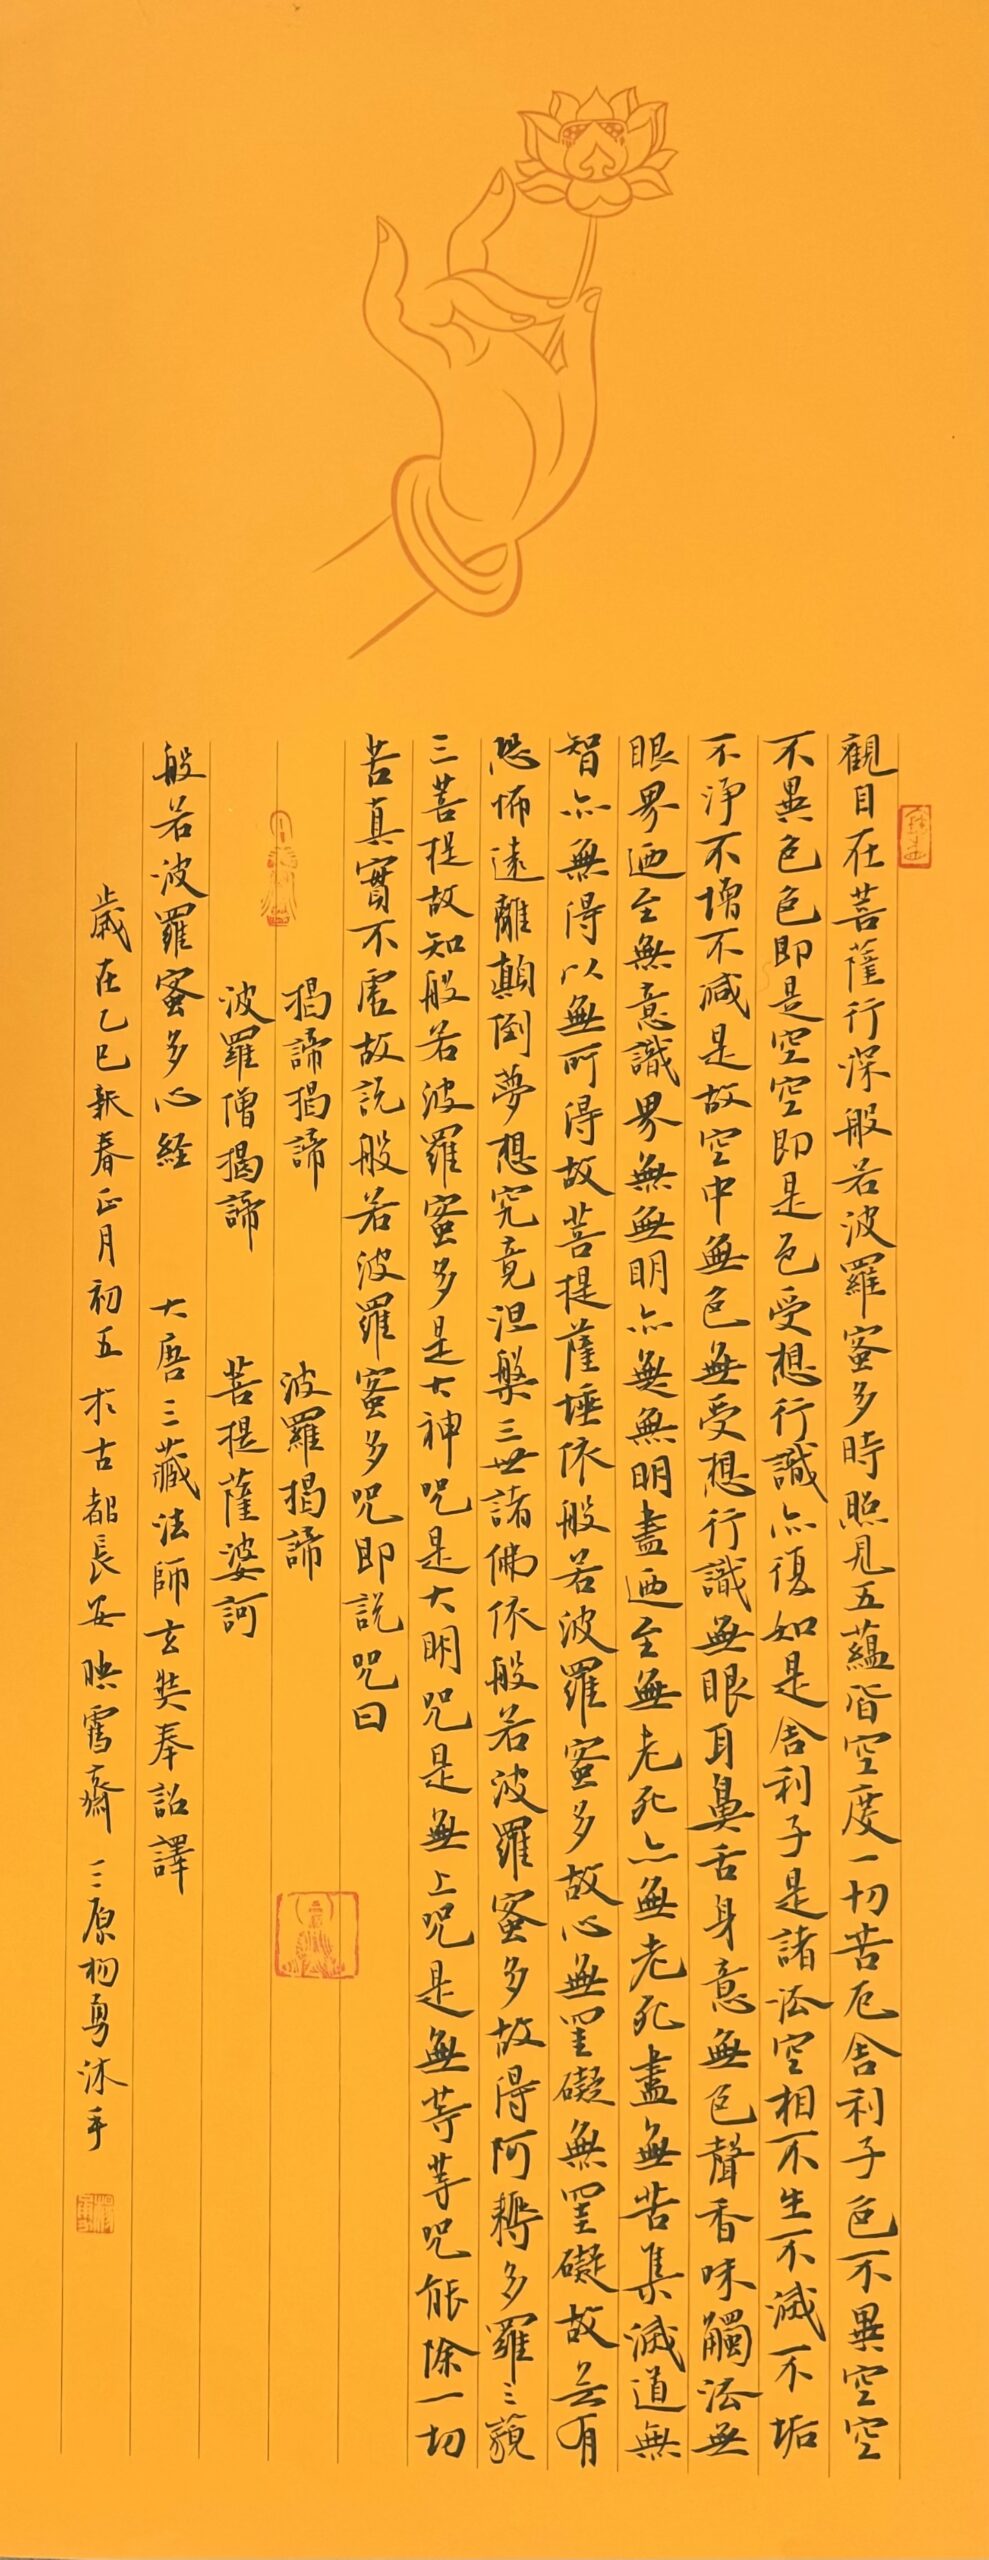 觀自在菩薩行深般若波羅蜜多時照見五蘊皆空度一切苦厄舍利子色不異空空
不異色色即是空空即是色受想行識亦復如是舍利子是諸法空相不生不滅不垢
不淨不增不減是故空中無色無受想行識無眼耳鼻舌身意無色聲香味觸法無
眼界廼至無意識界無無明亦無無明盡廼至無老死亦無老死盡無苦集滅道無
智亦無得以無所得故菩提薩埵依般若波羅蜜多故心無罣礙無罣礙故无有
恐怖遠離顛倒夢想究竟涅槃三世諸佛依般若波羅蜜多故得阿耨多羅三藐
三菩提故知般若波羅蜜多是大神咒是大明咒是無上咒是無等等咒能除一切
苦真實不虛故說般若波羅蜜多咒即說咒曰
揭諦揭諦 波羅揭諦
波羅僧揭諦 菩提薩婆訶
般若波羅蜜多心経 大唐三藏法師玄奘奉詔譯
歲在乙巳新春正月初五於古都長安映雪齋 三原楊勇沐手